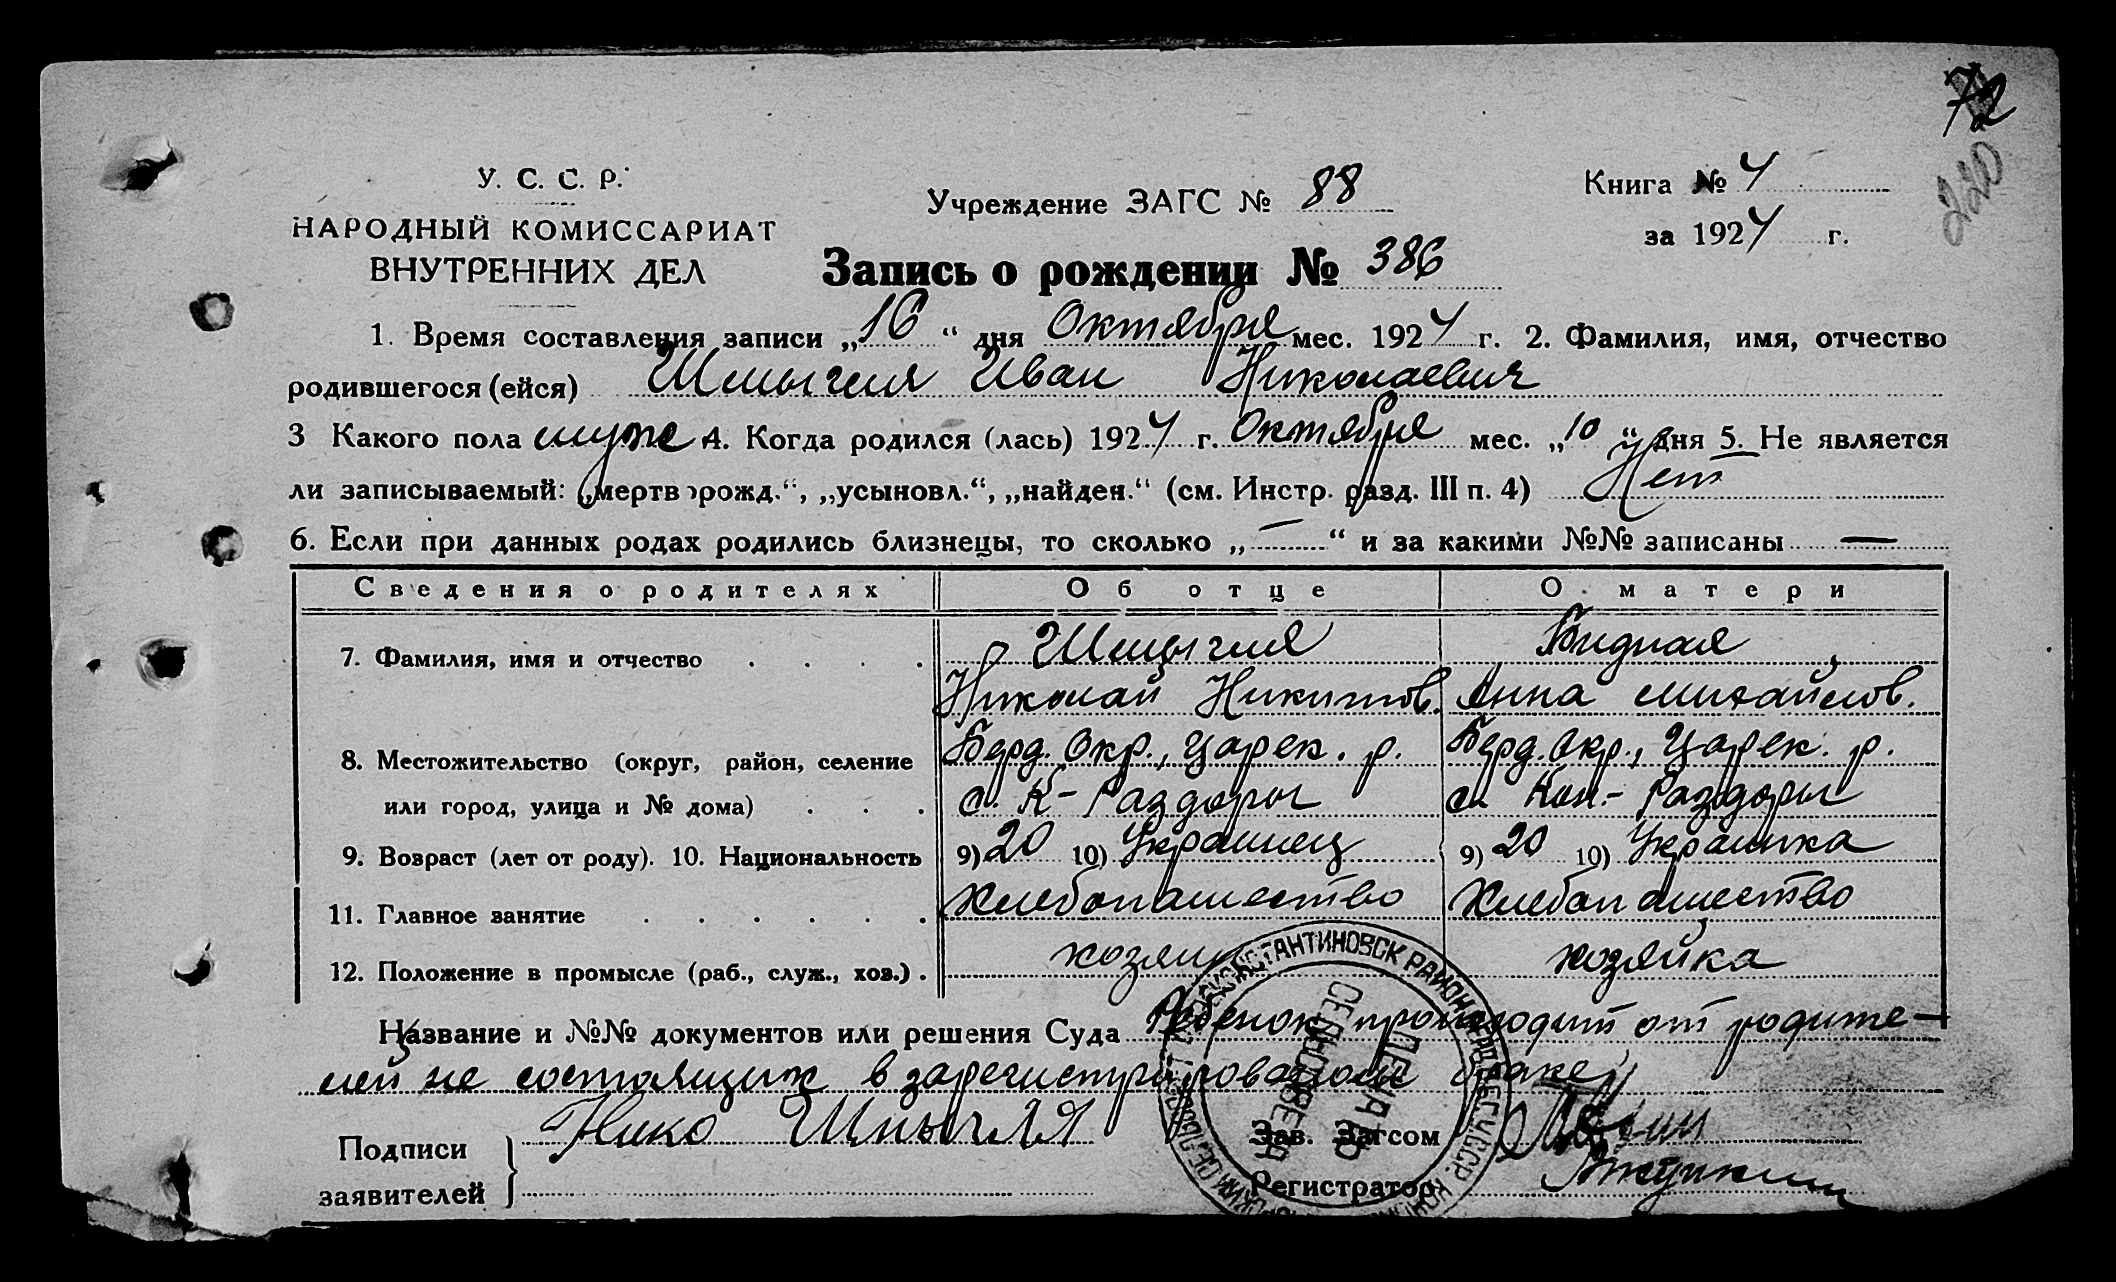 72
220
У. С. С. Р.
НАРОДНЫЙ КОМИССАРИАТ
ВНУТРЕННИХ ДЕЛ
Учреждение ЗАГС № 88
Книга № 4
за 1924 г.
Запись о рождении № 386
1. Время составления записи „16“ дня Октября мес. 1924 г. 2. Фамилия, имя, отчество
родившегося (ейся) Шмыгля Иван Николаевич
3 Какого пола муж 4. Когда родился (лась) 1924 г. Октября мес. „10“ дня 5. Не является
ли записываемый: „мертворожд.“, „усыновл.“, „найден.“ (см. Инстр. разд. III п. 4) Нет
6. Если при данных родах родились близнецы, то сколько „—“ и за какими №№ записаны —
Сведения о родителях Об отце О матери
7. Фамилия, имя и отчество . . . . Шмыгля Бидная
Николай Никитов. Анна Михайлов.
8. Местожительство (округ, район, селение Берд. Окр., Царек. р. Берд. Окр., Царек. р.
или город, улица и № дома) . . . с. К-Раздоры с. Кон.-Раздоры
9. Возраст (лет от роду). 10. Национальность 9) 20 10) Украинец 9) 20 10) Украинка
11. Главное занятие . . . . . . Хлебопашество Хлебопашество
12. Положение в промысле (раб., служ., хоз.) . хозяин хозяйка
Название и №№ документов или решения Суда Ребенок происходит от родите-
лей не состоящих в зарегистрированом браке
Подписи
заявителей
Нико Шмыгля
Зав. Загсом
Регистратор